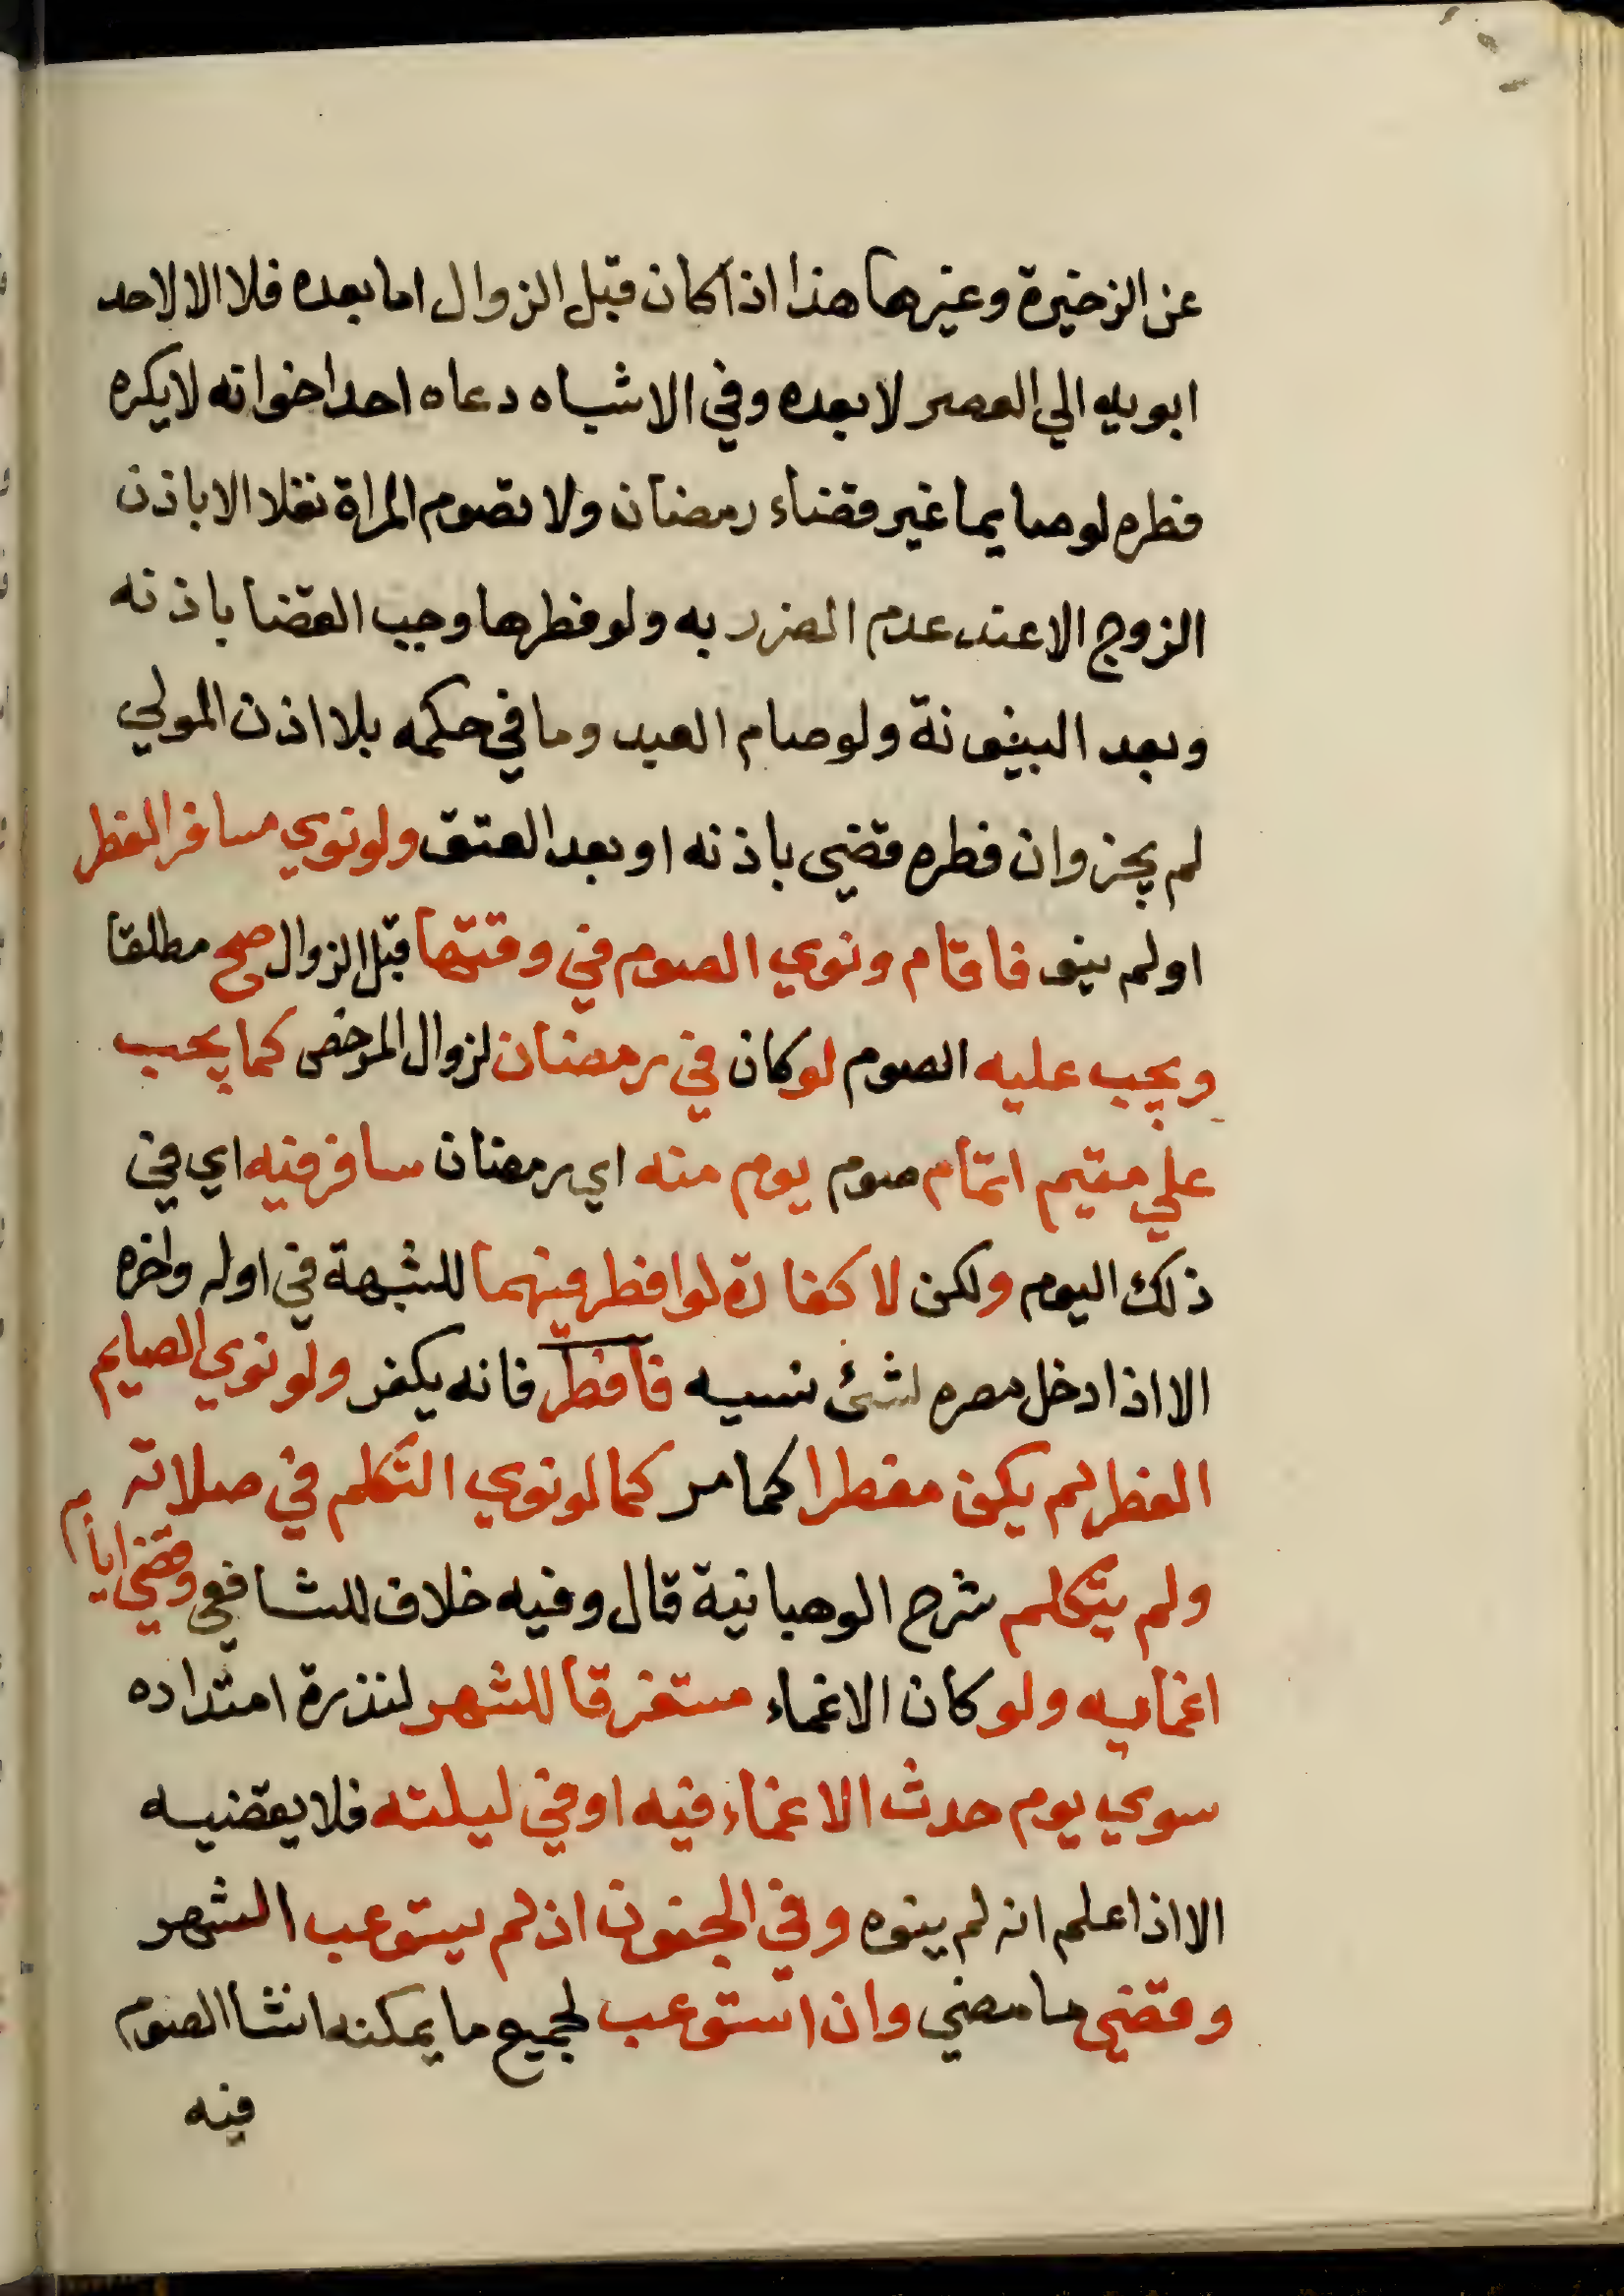 عن الزخيرة وغيرها هذا اذا كان قبل الزوال اما بعده فلا الا لاحد
ابويه الي العصر لا بعده وفي الاشباه دعاه احد اخواته لا يكره
فطره لو صايما غير قضاء رمضان ولا تصوم المراة نفلا الا باذن
الزوج الا عند عدم الضرر به ولو فطرها وجب القضا باذنه
وبعد البينونة ولو صام العبد وما في حكمه بلا اذن المولي
لم يجز وان فطره قضي باذنه او بعد العتق ولو نوي مسافر الفطر
او لم ينو فاقام ونوي الصوم في وقتها قبل الزوال صح مطلقا
ويجب عليه الصوم لو كان في رمضان لزوال المرخص كما يجب
علي مقيم اتمام صوم يوم منه اي رمضان سافر فيه اي في
ذلك اليوم ولكن لا كفارة لو افطر فيهما للشبهة في اوله واخره
الا اذا دخل مصره لشئ نسيه فافطر فانه يكفر ولو نوي الصايم
الفطر لم يكن مفطرا كما مر كما لو نوي التكلم في صلاته
ولم يتكلم شرح الوهبانية قال وفيه خلاف للشافعي وقضي ايام
اغمايه ولو كان الاغماء مستغرقا للشهر لنذرة امتداده
سوي يوم حدث الاغماء فيه او في ليلته فلا يقضيه
الا اذا علم انه لم ينوه وفي الجنون اذ لم يستوعب الشهر
وقضي ما مضي وان استوعب لجميع ما يمكنه انشا الصوم
فيه